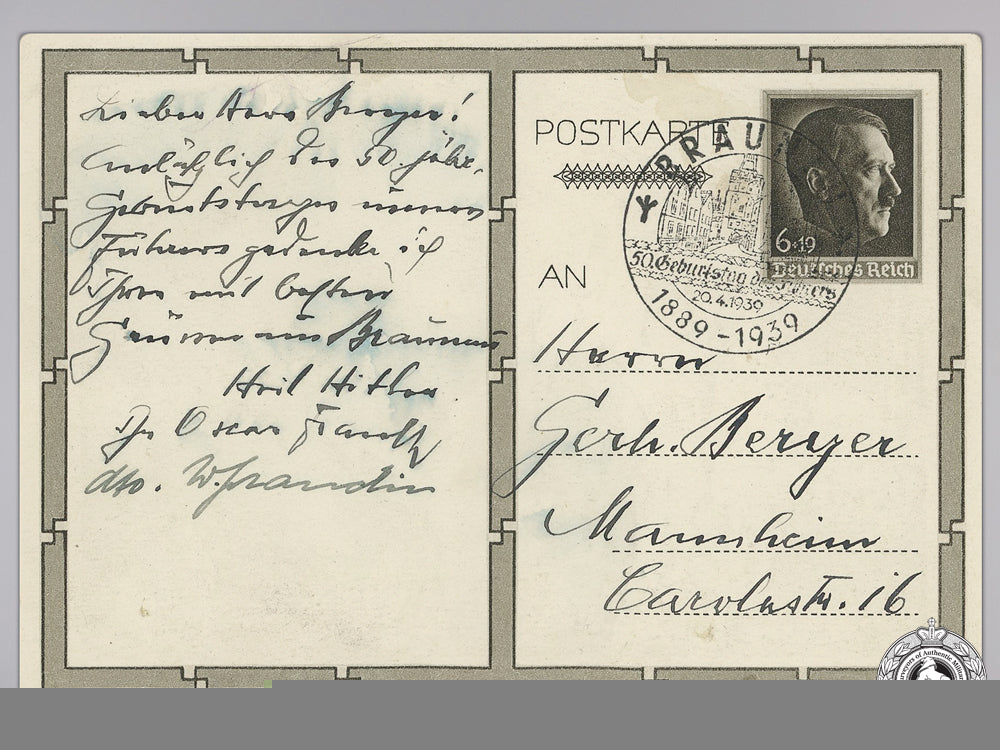 Lieber Herr Berger!
Anläßlich des 50. jähr.
Geburtstages unseres
Führers gedenke ich
Ihrer mit besten
Grüssen aus Braunau
Heil Hitler
Ihr Oscar
dto.
POSTKARTE
BRAU
50. Geburtstag des Führers
20.4.1939
1889-1939
6+19
Deutsches Reich
AN
Herrn
Gerh. Berger
Mannheim
Carolastr. 16